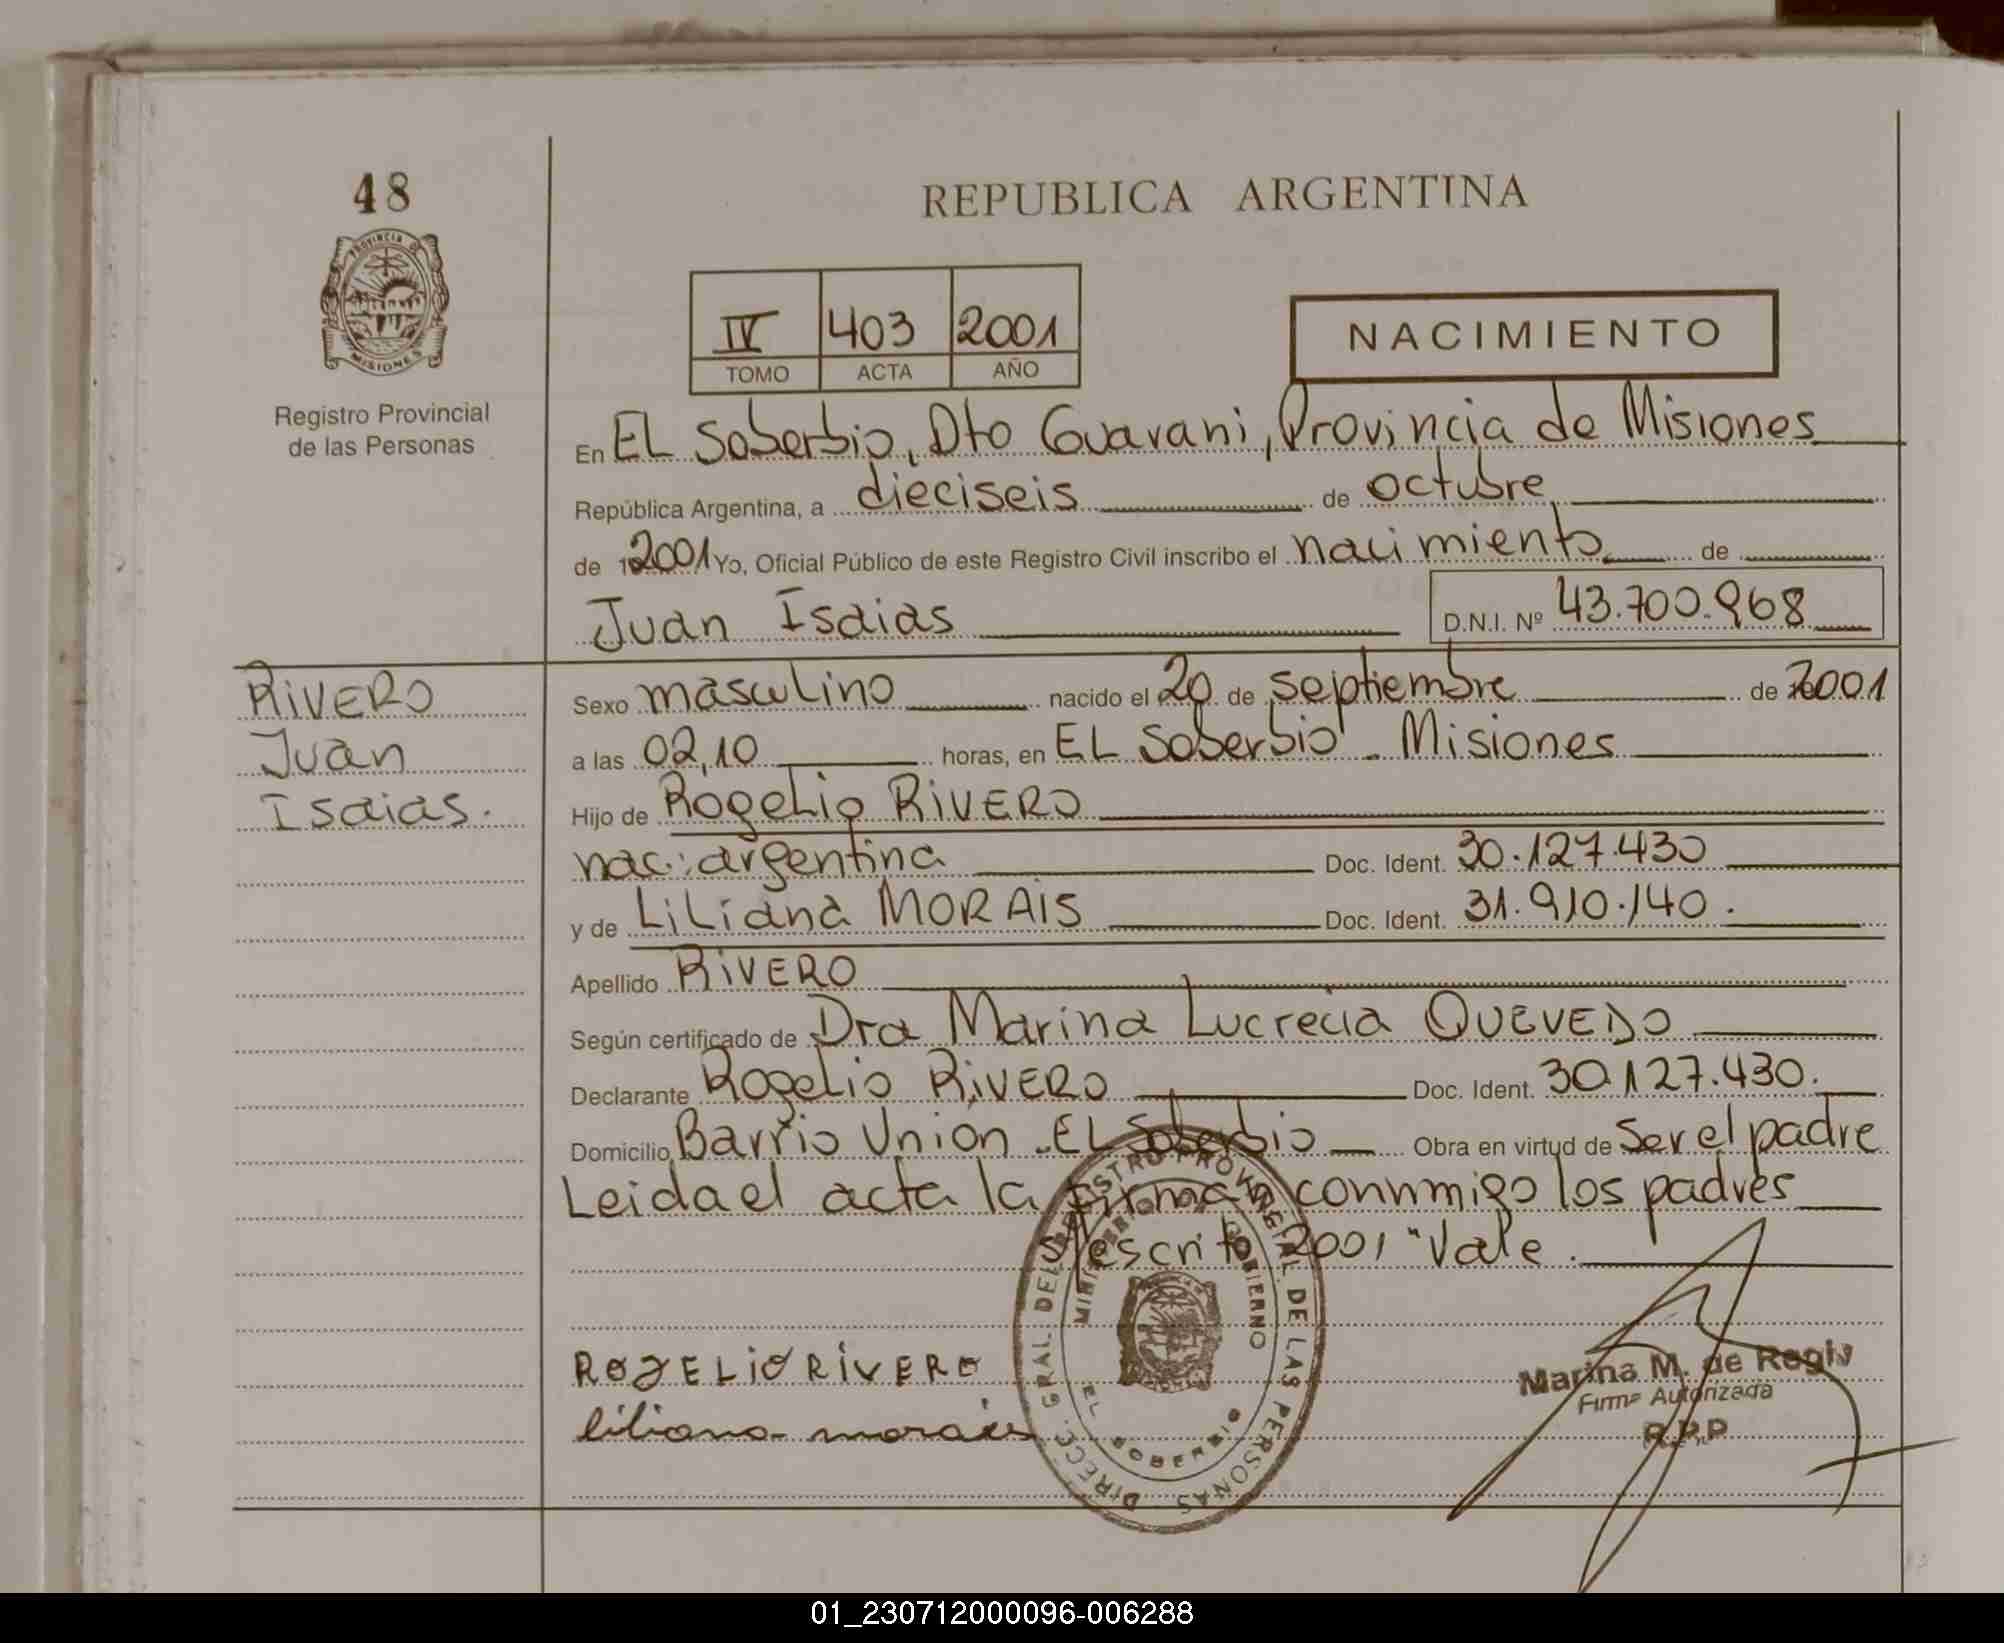 48
PROVINCIA DE
MISIONES
Registro Provincial
de las Personas
REPUBLICA ARGENTINA
IV 403 2001
TOMO ACTA AÑO
NACIMIENTO
En EL Soberbio, Dto Guarani, Provincia de Misiones
República Argentina, a dieciseis de octubre
de 2001 Yo, Oficial Público de este Registro Civil inscribo el nacimiento de
Juan Isaias D.N.I. Nº 43.700.968
RIVERO
Juan
Isaias.
Sexo masculino nacido el 20 de septiembre de 2001
a las 02,10 horas, en EL Soberbio - Misiones
Hijo de Rogelio RIVERO
nac: argentina Doc. Ident. 30.127.430
y de LiLiana MORAIS Doc. Ident. 31.910.140.
Apellido RIVERO
Según certificado de Dra Marina Lucrecia QUEVEDO
Declarante Rogelio RIVERO Doc. Ident. 30.127.430.
Domicilio Barrio Union - EL Soberbio Obra en virtud de ser el padre
Leida el acta la firman connmigo los padres
escrito 2001 "Vale.
ROJELIO RIVERO
liliana morais
DIRECC. GRAL. DEL REGISTRO PROVINCIAL DE LAS PERSONAS
MINISTERIO DE GOBIERNO
EL SOBERBIO
Marina M. de Regis
Firma Autorizada
R.P.P
01_230712000096-006288